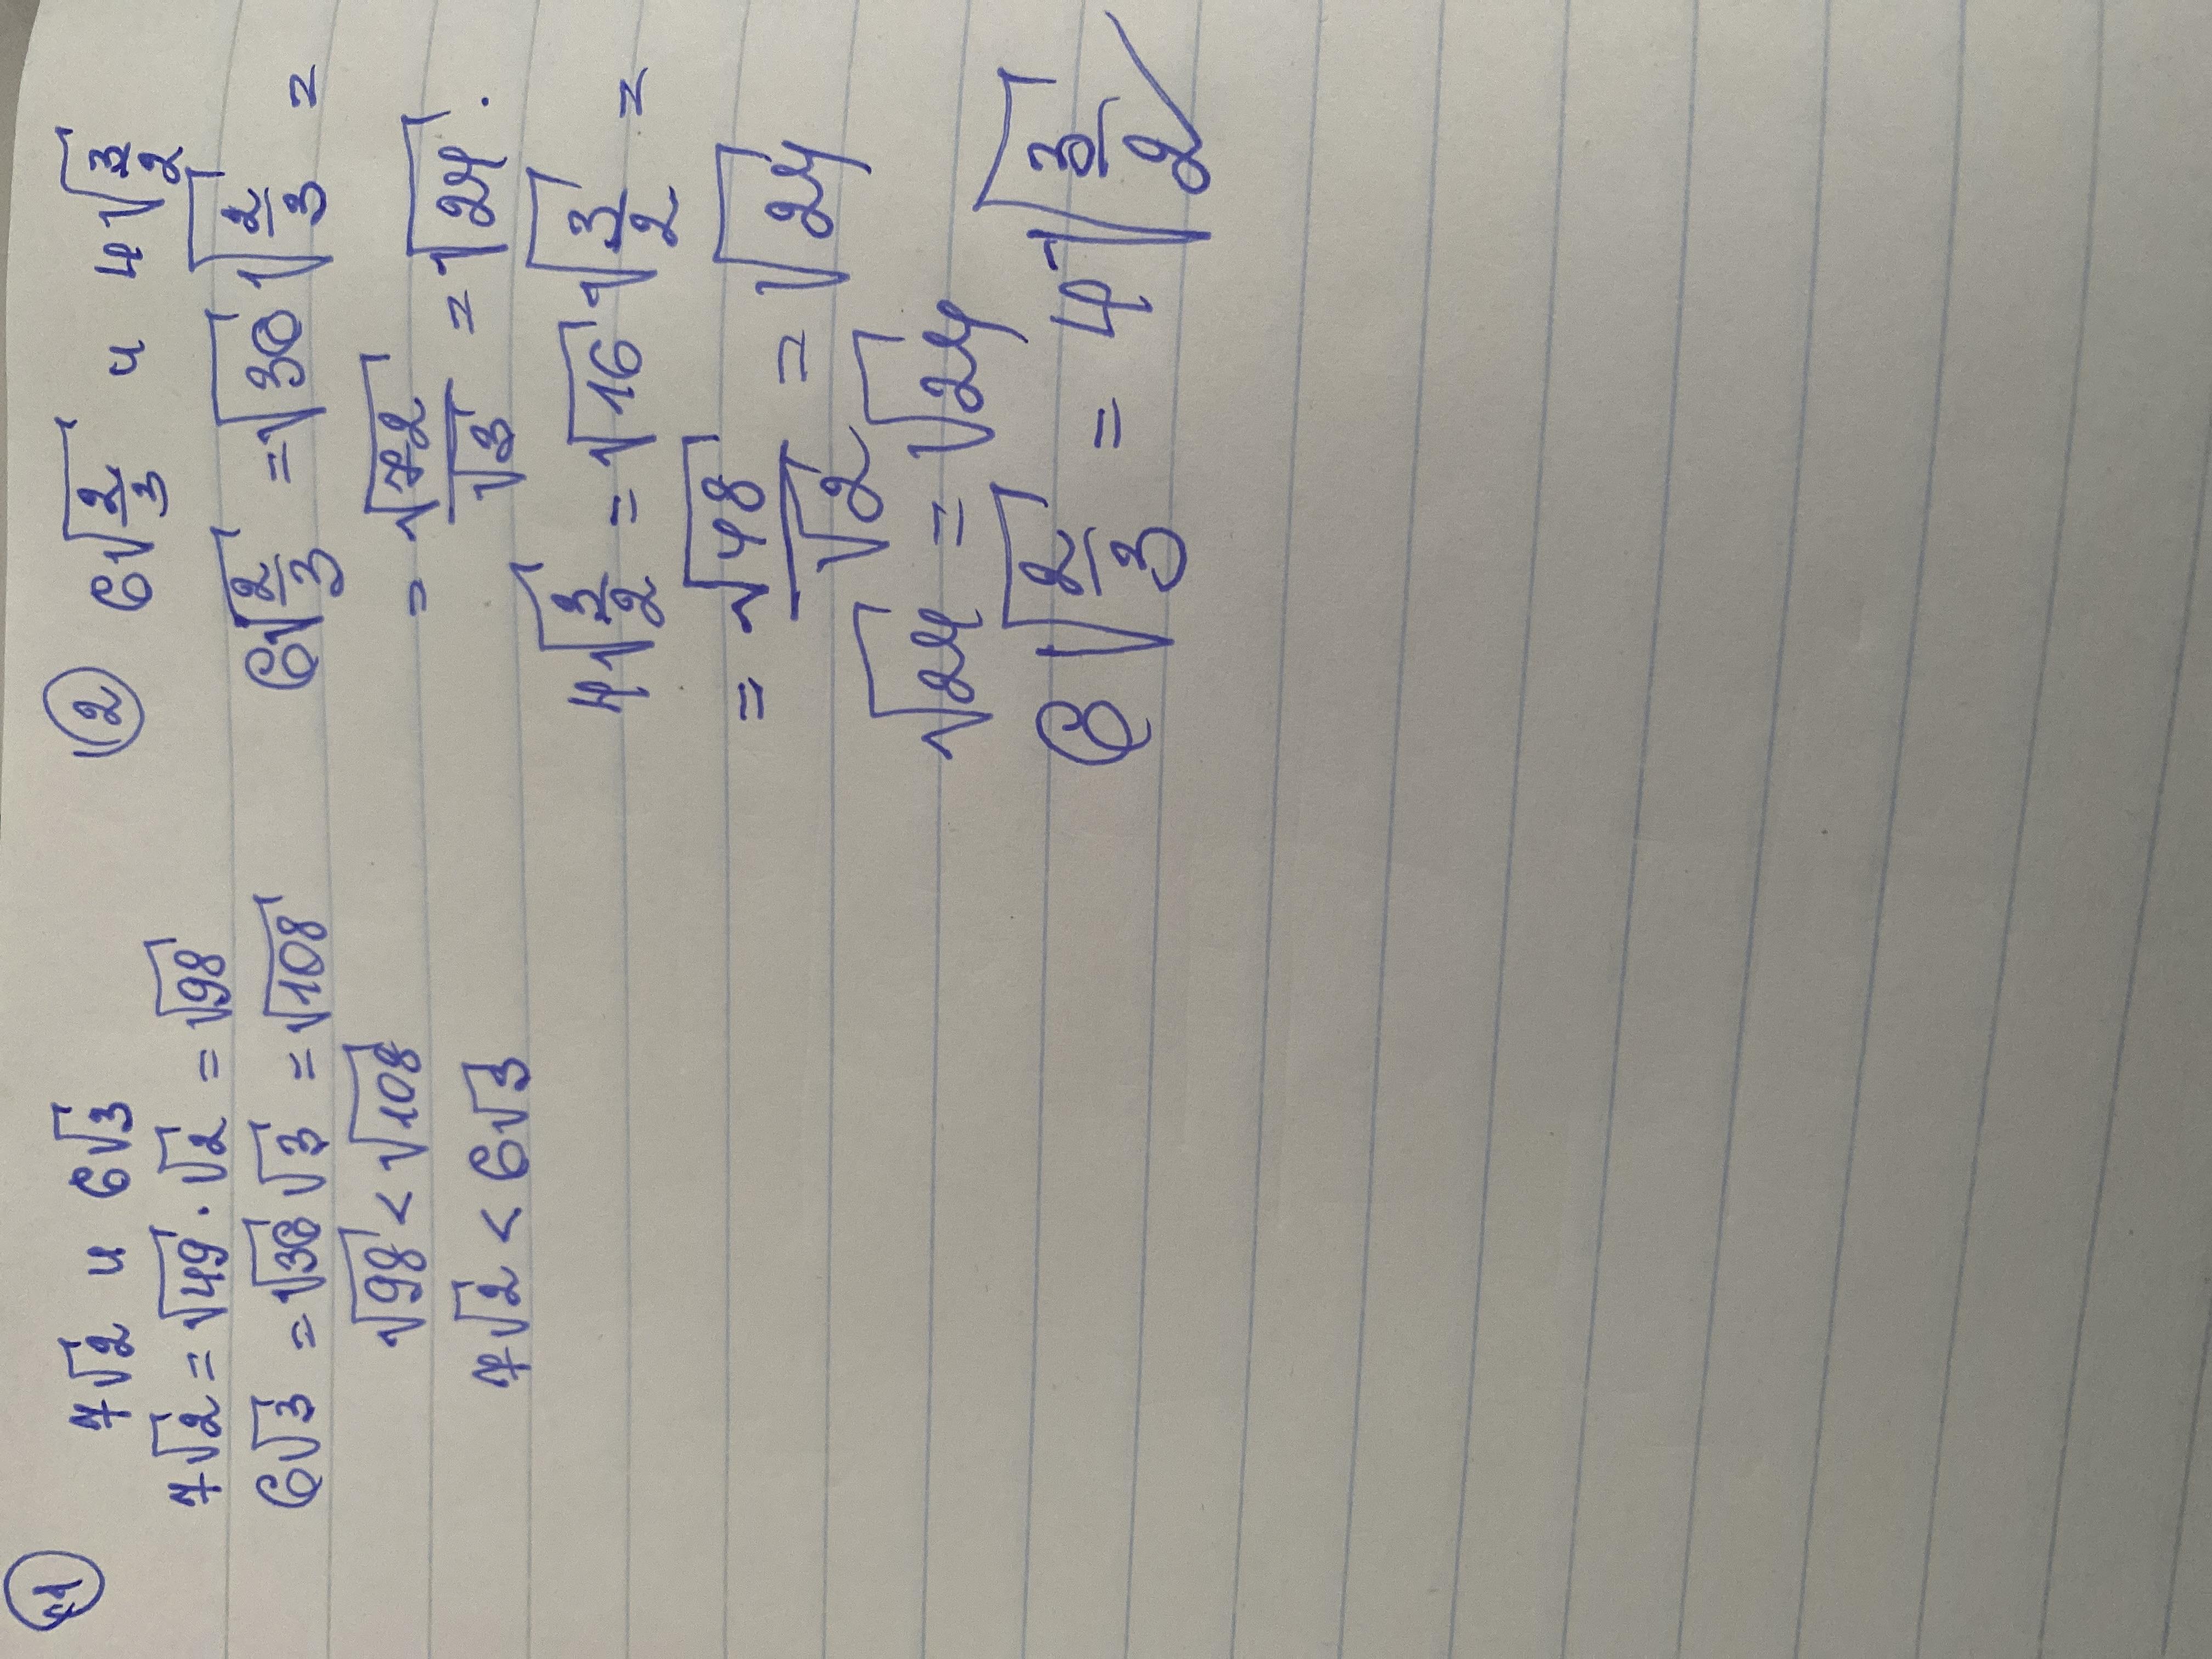 ① 7√2 и 6√3
7√2 = √49 · √2 = √98
6√3 = √36 √3 = √108
√98 < √108
7√2 < 6√3
② 6√(2/3) и 4√(3/2)
6√(2/3) = √36 √(2/3) =
= √72/√3 = √24.
4√(3/2) = √16 √(3/2) =
= √48/√2 = √24
√24 = √24
6√(2/3) = 4√(3/2)